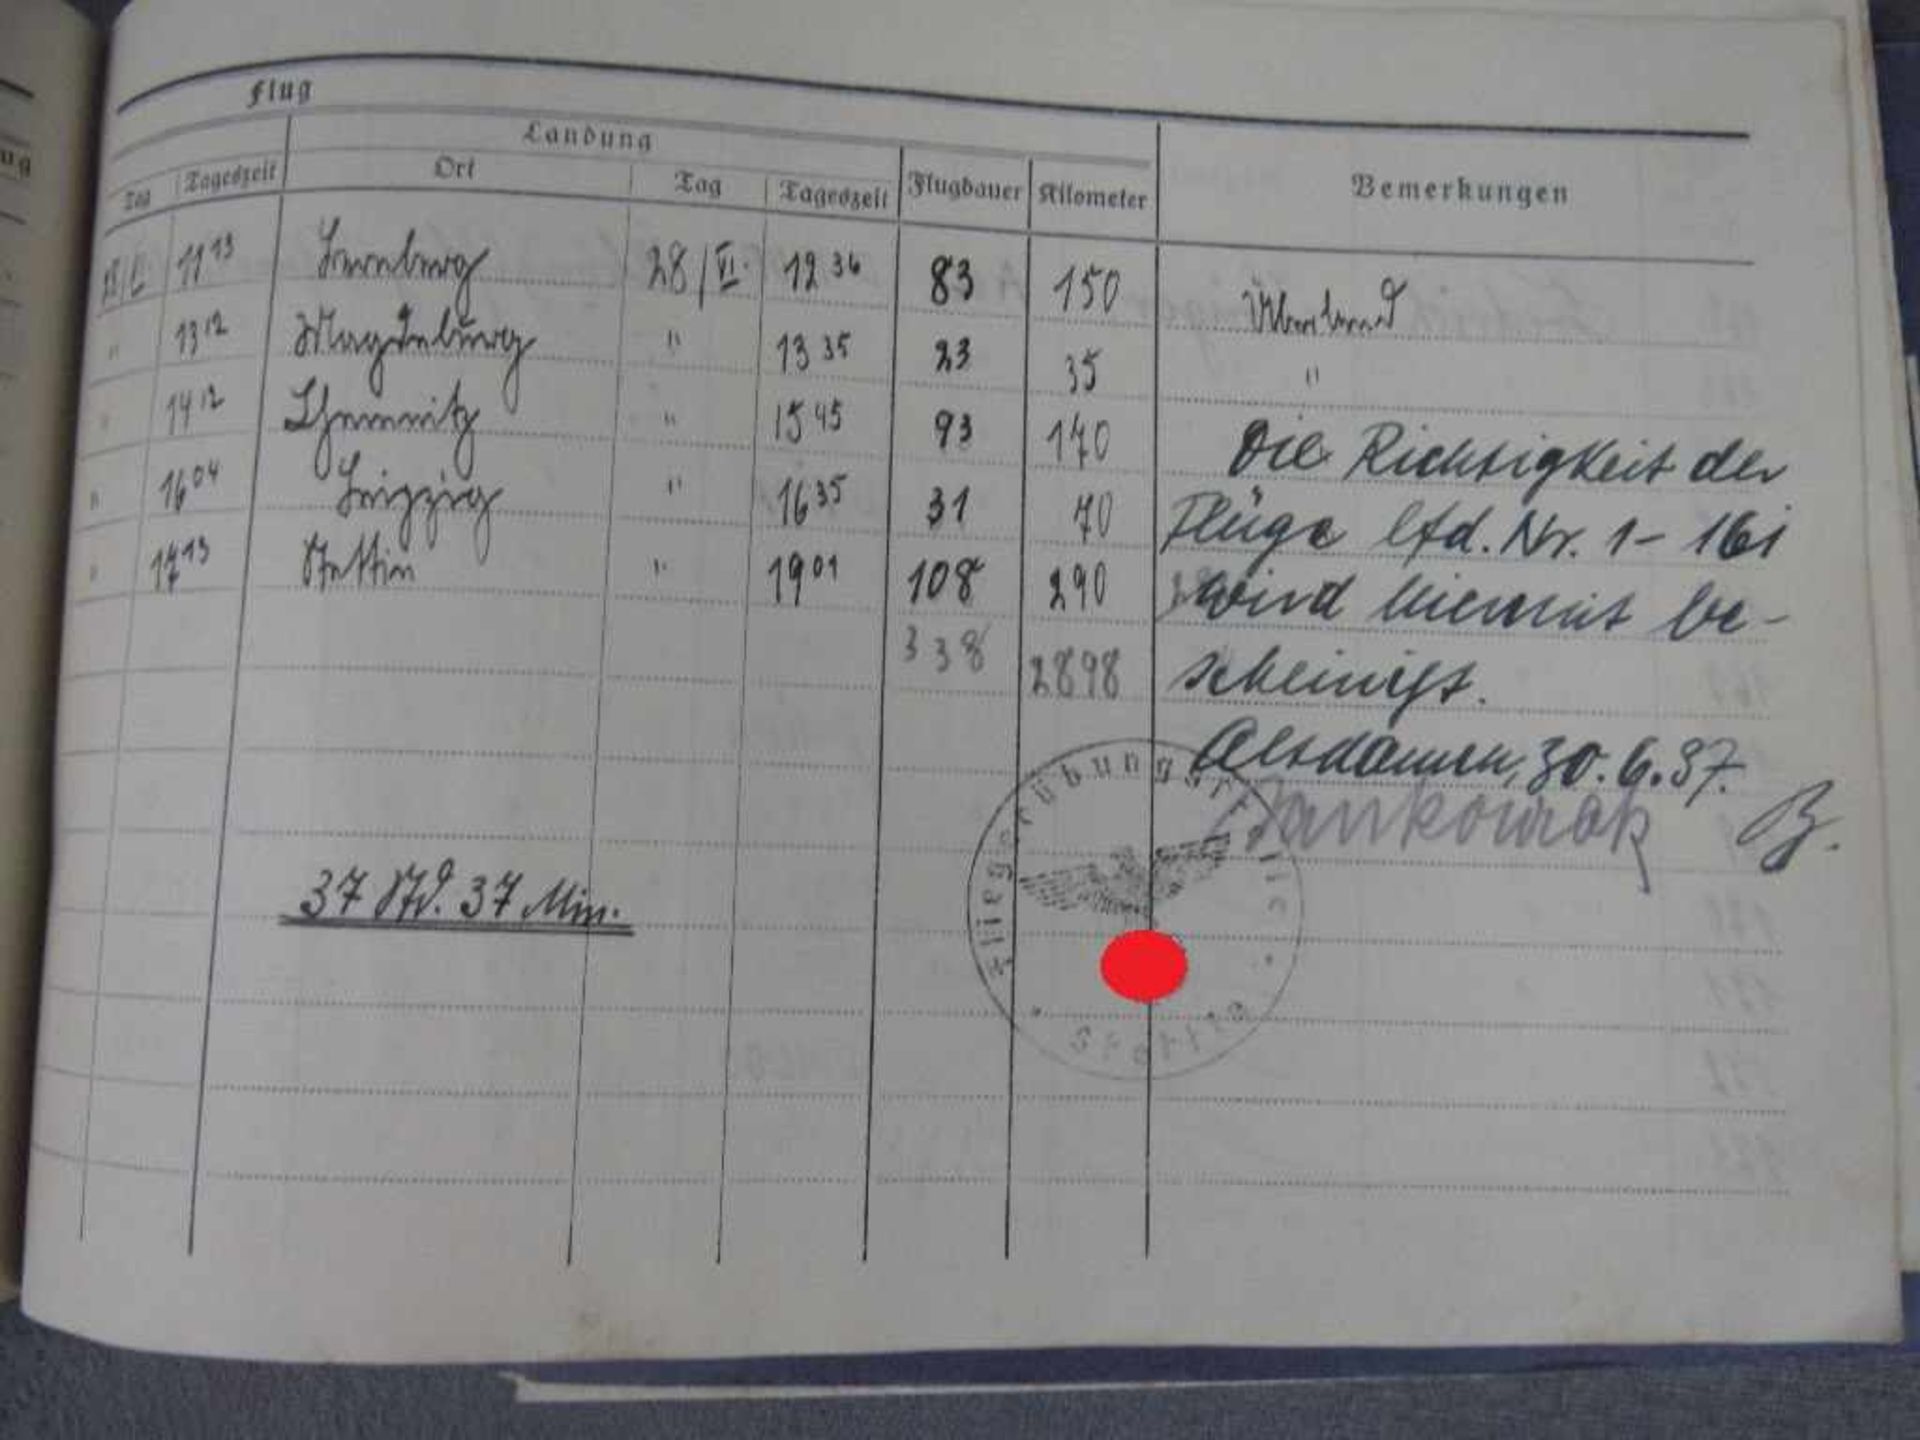 Flug
Landung
Tag Tageszeit Ort Tag Tageszeit Flugdauer Kilometer Bemerkungen
11 13 28/VI. 12 36 83 150 Überland
" 13 12 Magdeburg " 13 35 23 35 "
" 14 12 Chemnitz " 15 45 93 170
" 16 04 Leipzig " 16 35 31 70
" 17 13 Stettin " 19 01 108 290
338 2898
Die Richtigkeit der
Flüge lfd. Nr. 1-161
wird hiermit be-
scheinigt.
Altdamm, 30.6.37.
Jankowiak B.
37 Std. 37 Min.
Fliegerübungsstelle
Stettin